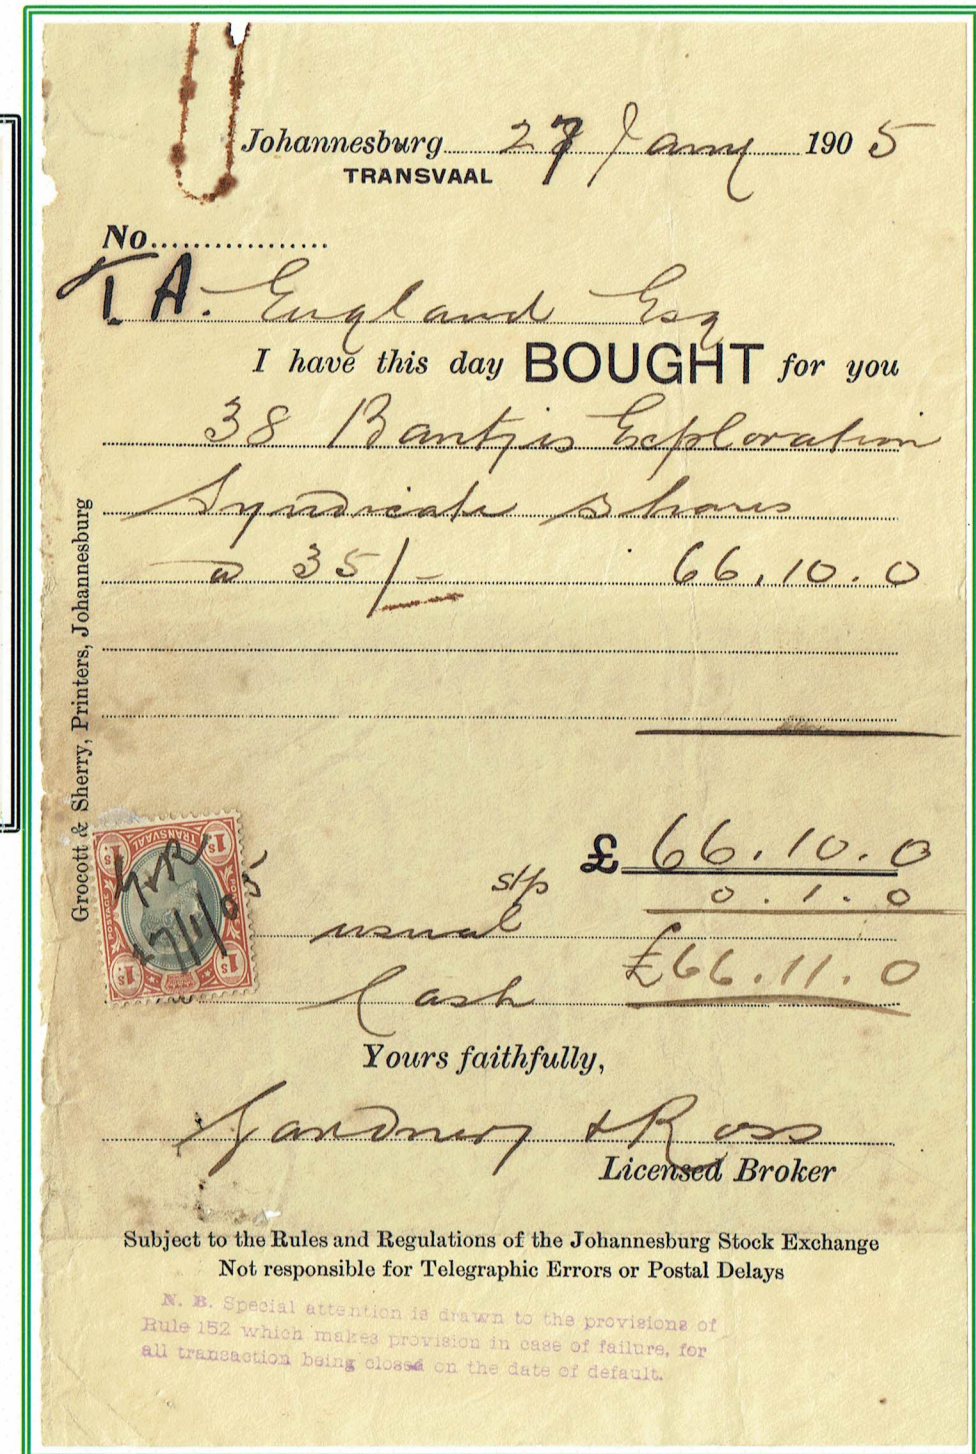 Johannesburg 27 Jany 1905
TRANSVAAL
No
T. A. England Esq
I have this day BOUGHT for you
38 Bantjis Exploration
Syndicate Shares
@ 35/- 66.10.0
Grocott & Sherry, Printers, Johannesburg
£ 66.10.0
stp 0.1.0
usual
£66.11.0
Cash
TRANSVAAL
POSTAGE
1s. 1s. 1s. 1s.
G&R
27/1/05
Yours faithfully,
Gardner & Ross
Licensed Broker
Subject to the Rules and Regulations of the Johannesburg Stock Exchange
Not responsible for Telegraphic Errors or Postal Delays
N. B. Special attention is drawn to the provisions of
Rule 152 which makes provision in case of failure, for
all transaction being closed on the date of default.